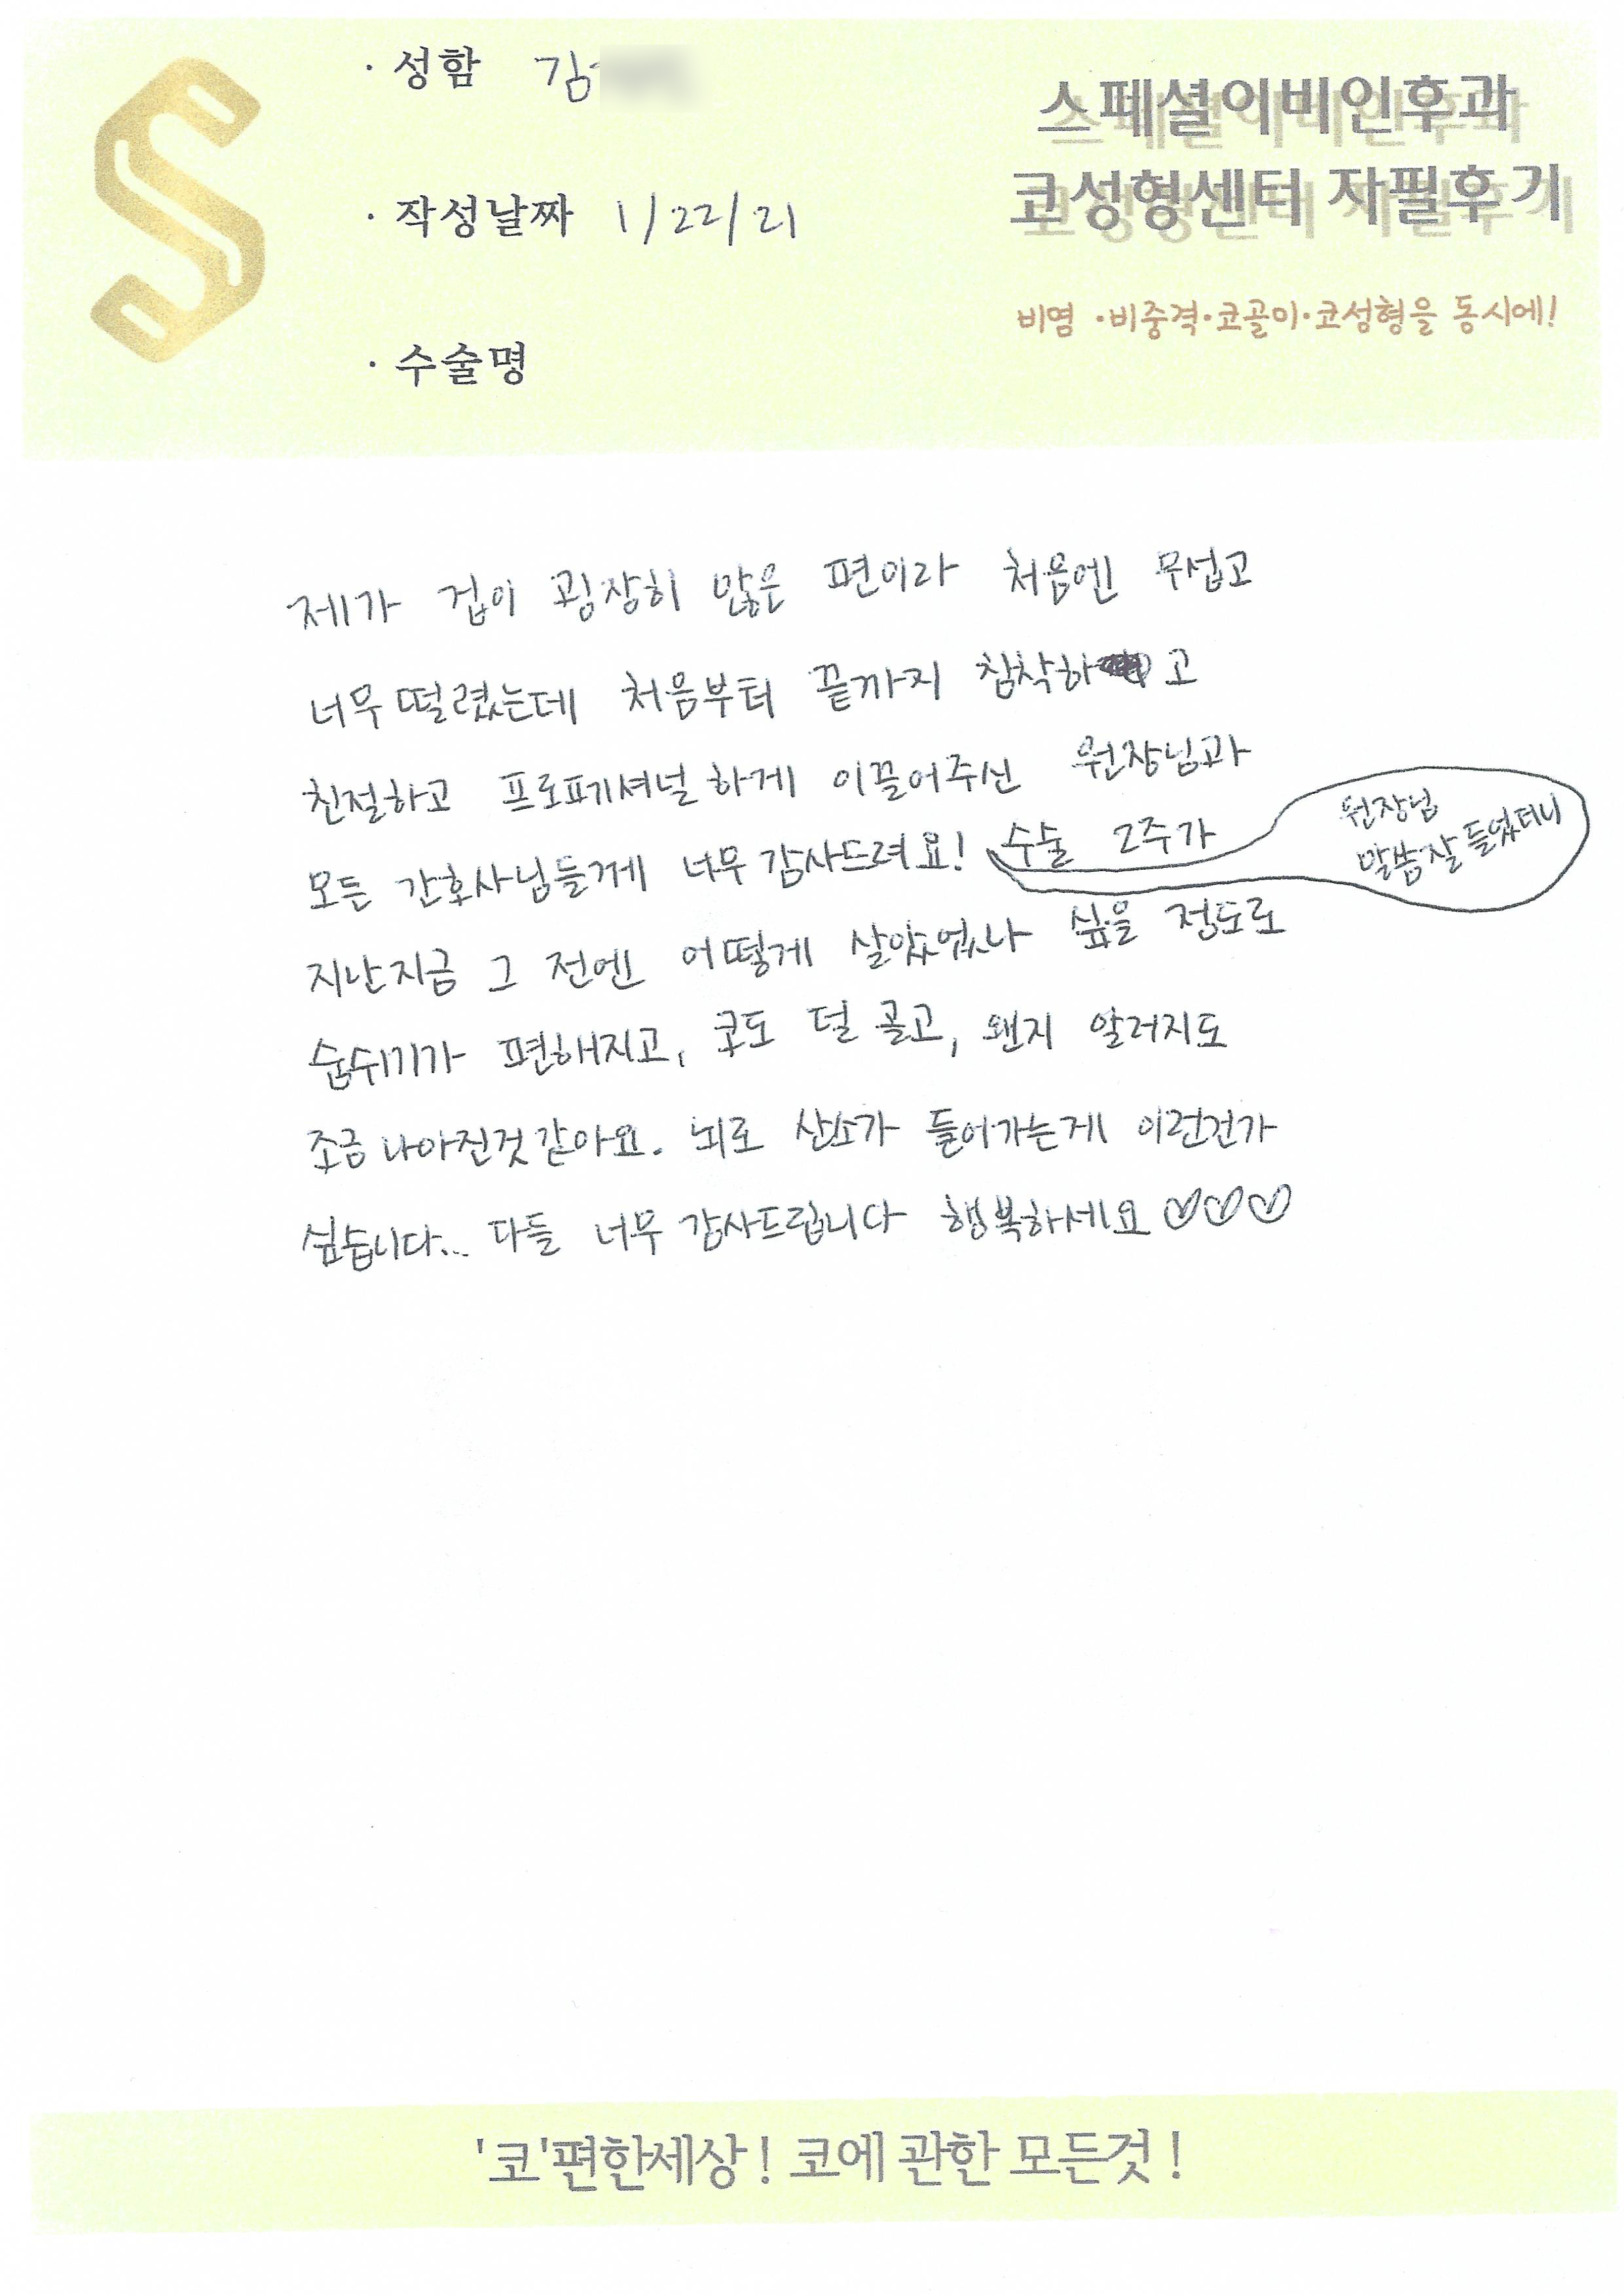 · 성함 김
스페셜이비인후과
코성형센터 자필후기
· 작성날짜 1/22/21
비염·비중격·코골이·코성형을 동시에!
· 수술명
제가 겁이 굉장히 많은 편이라 처음엔 무섭고
너무 떨렸는데 처음부터 끝까지 침착하고
친절하고 프로페셔널하게 이끌어주신 원장님과
모든 간호사님들께 너무 감사드려요! 수술 2주가
원장님
말씀 잘 들었더니
지난지금 그 전엔 어떻게 살았었나 싶을 정도로
숨쉬기가 편해지고, 코도 덜 골고, 왠지 알러지도
조금 나아진것 같아요. 뇌로 산소가 들어가는게 이런건가
싶습니다... 다들 너무 감사드립니다 행복하세요♡♡♡
'코'편한세상! 코에 관한 모든것!